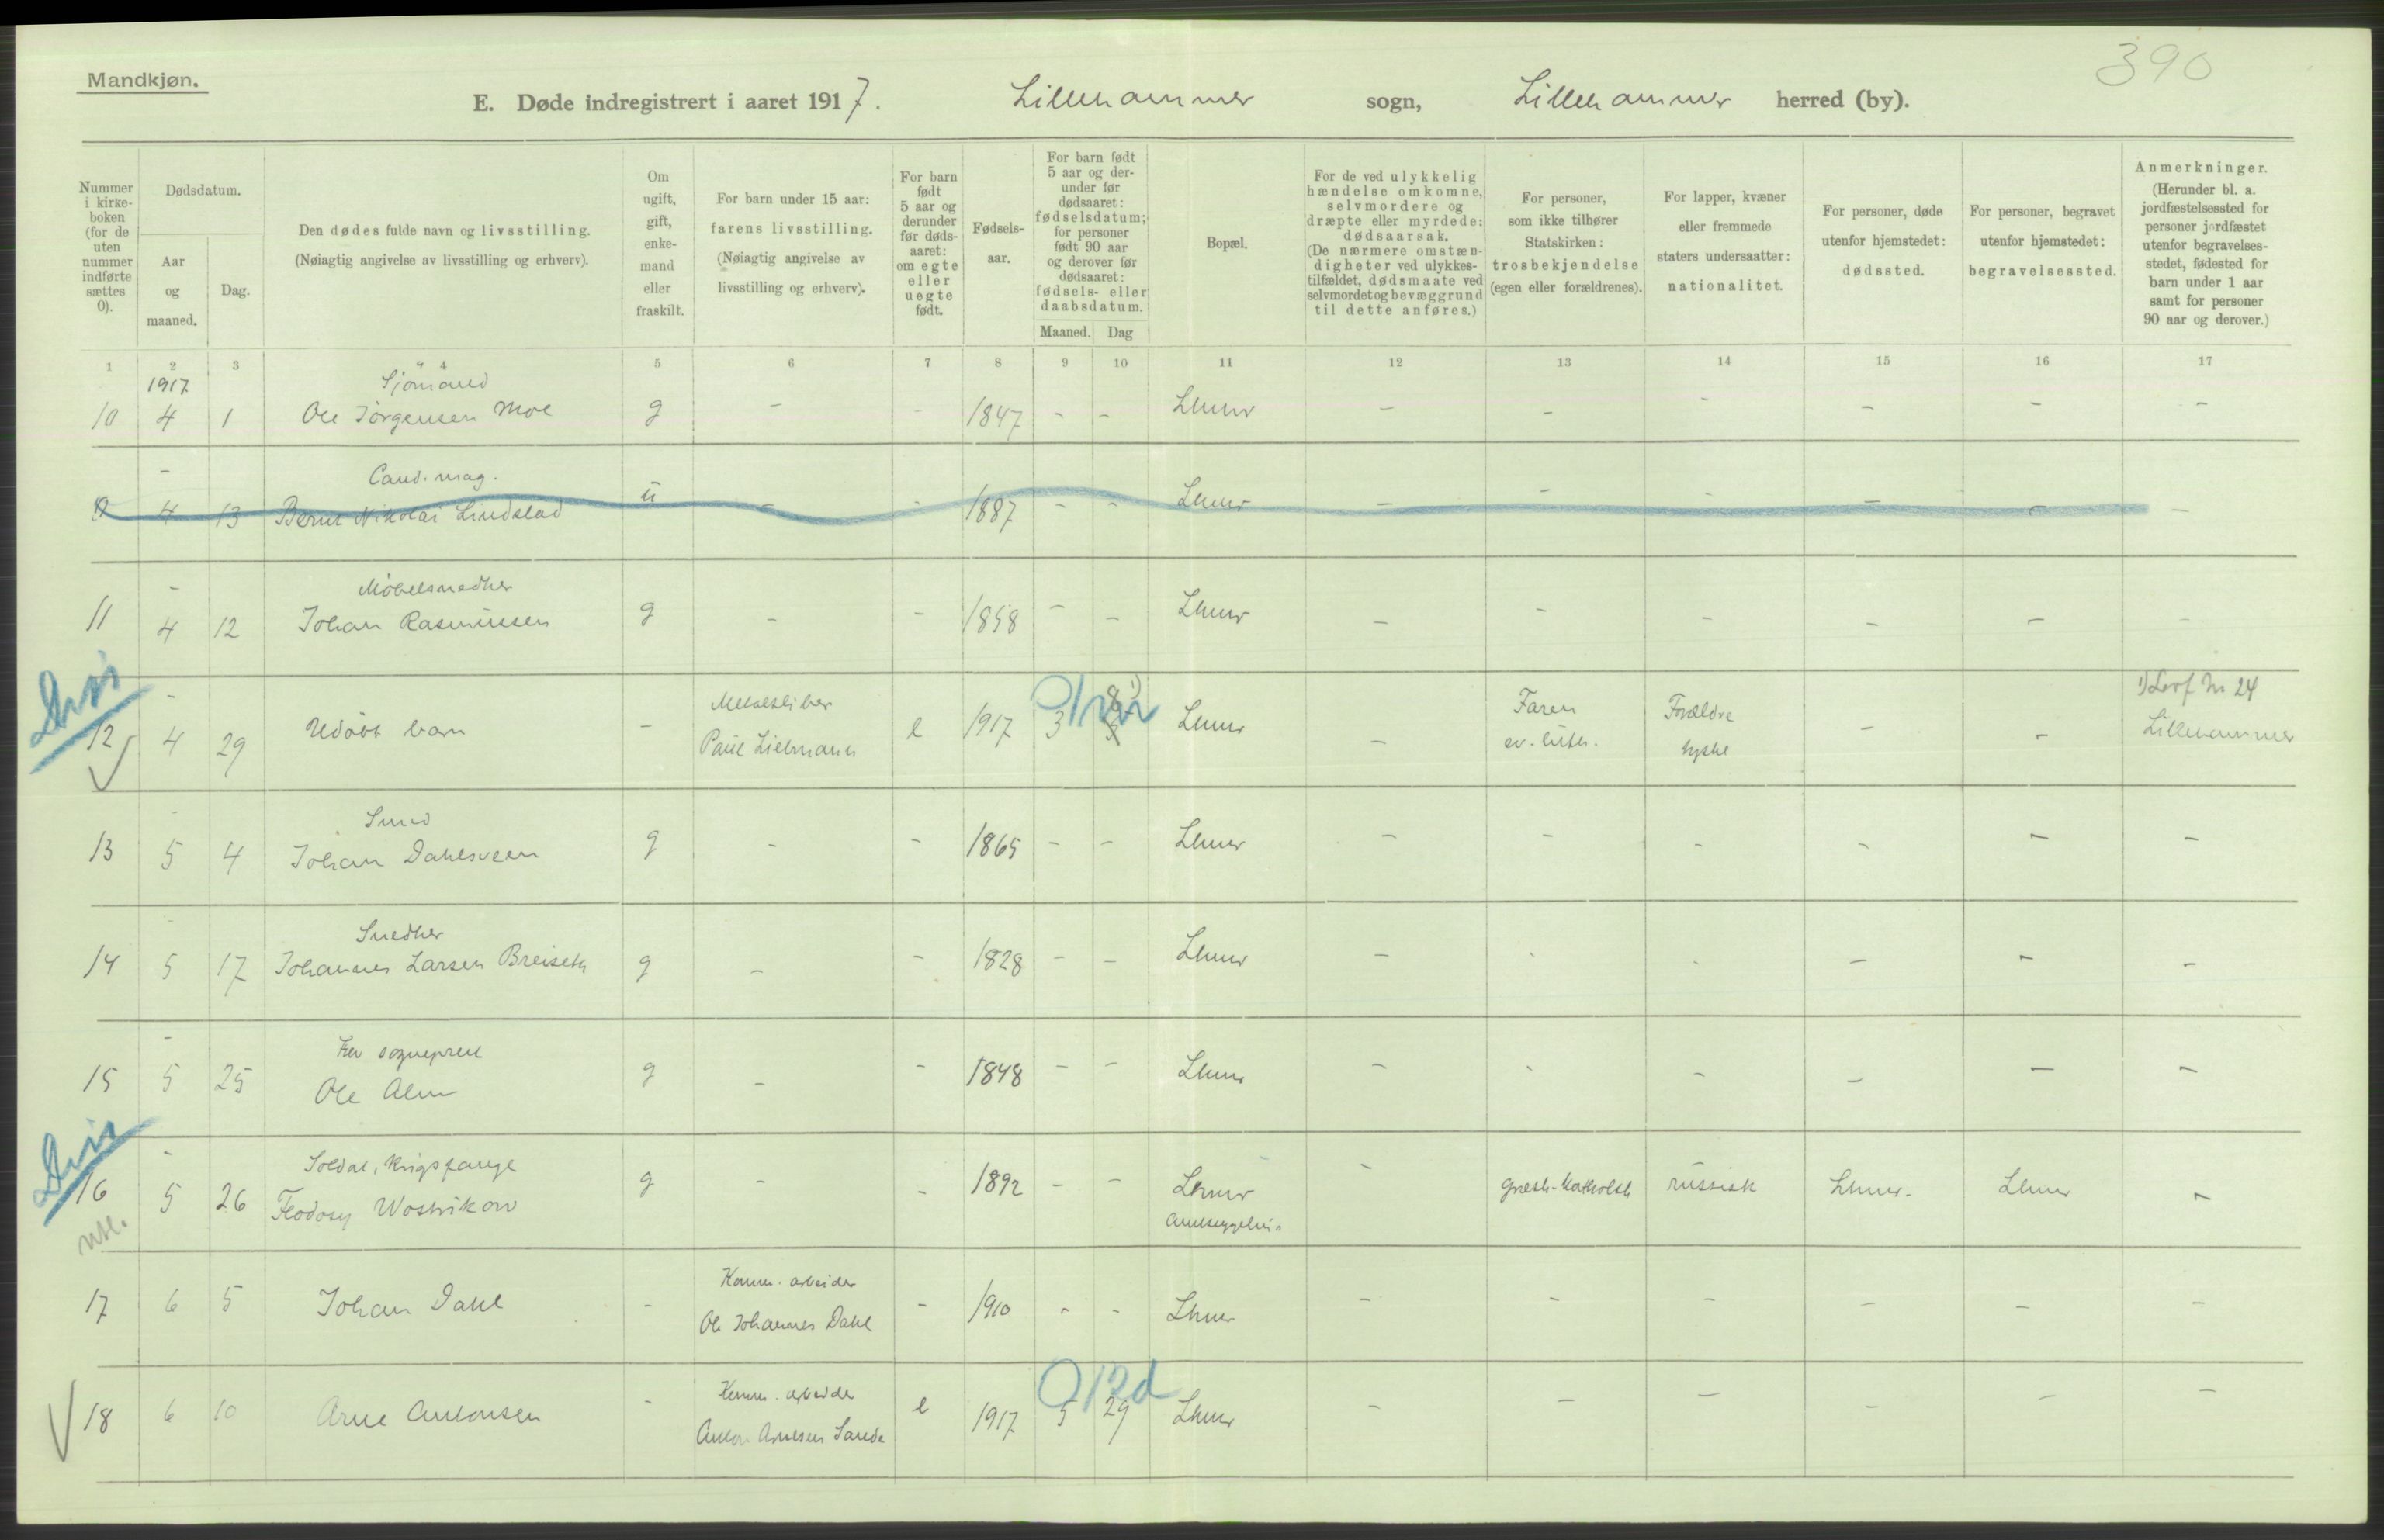 390
Mandkjøn.
E. Døde indregistrert i aaret 1917. Lillehammer sogn, Lillehammer herred (by).
Nummer i kirke-boken (for de uten nummer indførte sættes 0).
Dødsdatum.
Aar og maaned.
Dag.
Den dødes fulde navn og livsstilling.
(Nøiagtig angivelse av livsstilling og erhverv).
Om ugift, gift, enke-mand eller fraskilt.
For barn under 15 aar: farens livsstilling.
(Nøiagtig angivelse av livsstilling og erhverv).
For barn født 5 aar og derunder før døds-aaret: om egte eller uegte født.
Fødsels-aar.
For barn født 5 aar og der-under før dødsaaret: fødselsdatum; for personer født 90 aar og derover før dødsaaret: fødsels- eller daabsdatum.
Maaned. Dag
Bopæl.
For de ved ulykkelig hændelse omkomne, selvmordere og dræpte eller myrdede: dødsaarsak.
(De nærmere omstæn-digheter ved ulykkes-tilfældet, dødsmaate ved selvmordet og bevæggrund til dette anføres.)
For personer, som ikke tilhører Statskirken: trosbekjendelse (egen eller forældrenes).
For lapper, kvæner eller fremmede staters undersaatter: nationalitet.
For personer, døde utenfor hjemstedet: dødssted.
For personer, begravet utenfor hjemstedet: begravelsessted.
Anmerkninger.
(Herunder bl. a. jordfæstelsessted for personer jordfæstet utenfor begravelses-stedet, fødested for barn under 1 aar samt for personer 90 aar og derover.)
1 2 3 4 5 6 7 8 9 10 11 12 13 14 15 16 17
1917 Sjömand
10 4 1 Ole Jörgensen Moe g - - 1847 - - Lhmr - - - - - -
- Cand. mag.
4 13 Bernt Nikolai Lindstad u - - 1887 - - Lhmr - - - - - -
- Möbelsnedker
11 4 12 Johan Rasmussen g - - 1858 - - Lhmr - - - - - -
- Faren Forældre 1) Lerf. No 24
12 4 29 Udöbt barn - Paul Liebmann e 1917 3 8 1) Lhmr - ev. luth. tyske - - Lillehammer
- Smed
13 5 4 Johan Dahlsveen g - - 1865 - - Lhmr - - - - - -
- Snedker
14 5 17 Johannes Larsen Breiseth g - - 1828 - - Lhmr - - - - - -
- Fhv sogneprest
15 5 25 Ole Alm g - - 1848 - - Lhmr - - - - - -
- Soldat, krigsfange
16 5 26 Feodosy Wostrikow g - - 1892 - - Lhmr - græsk-katholsk russisk Lhmr. Lhmr -
Komm. arbeider
17 6 5 Johan Dahl - Ole Johannes Dahl - 1910 - - Lhmr - - - - - -
Komm. arbeider 0/12d
18 6 10 Arne Antonsen - Anton Arnesen Sande e 1917 5 29 Lhmr - - - - - -